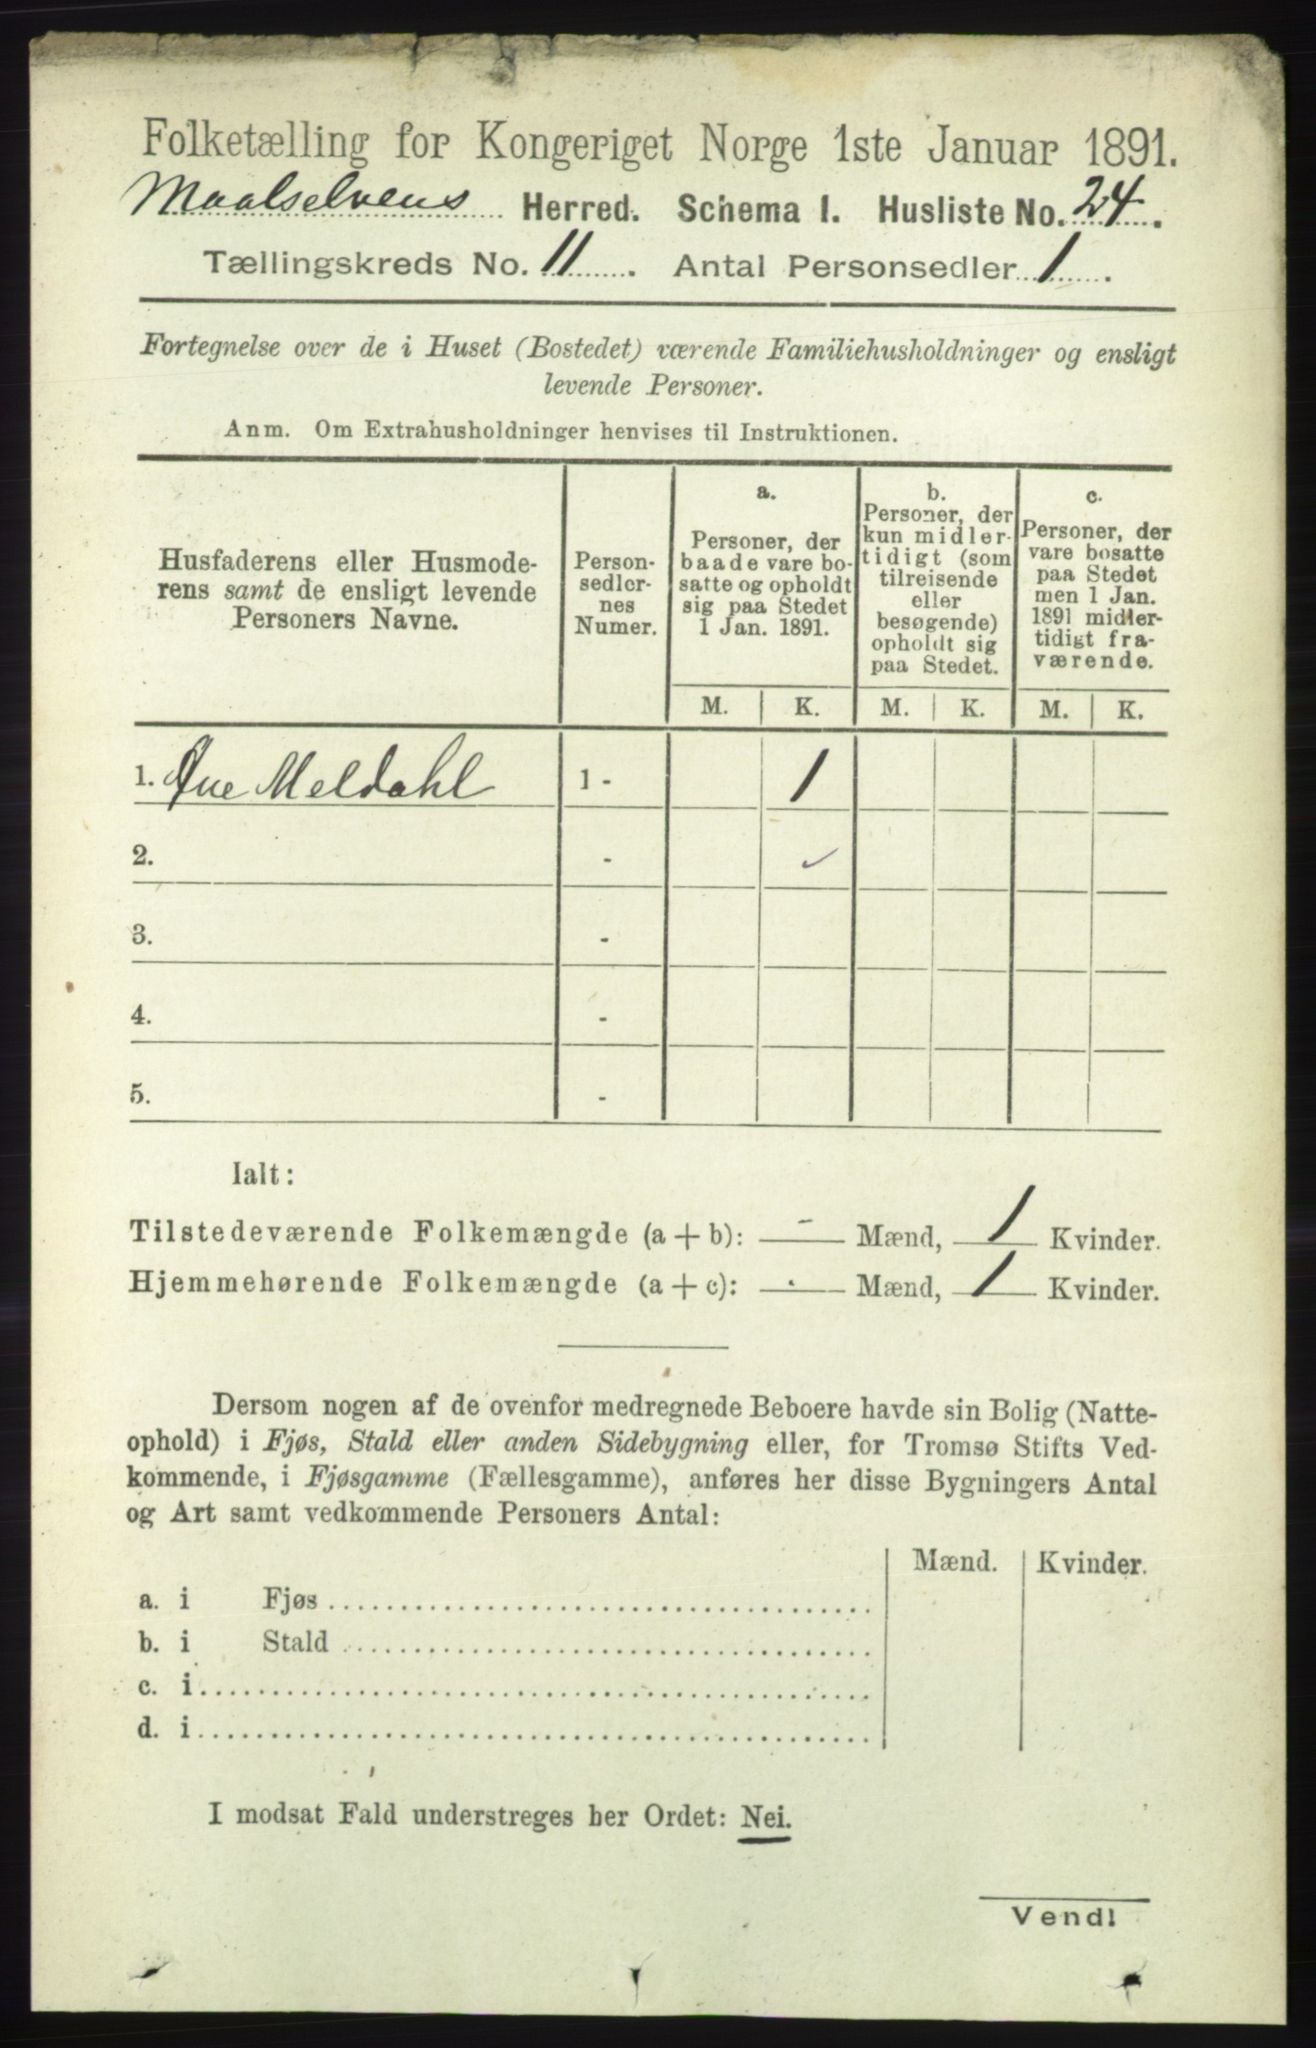 Folketælling for Kongeriget Norge 1ste Januar 1891.
Maalselvens Herred. Schema I. Husliste No. 24.
Tællingskreds No. 11. Antal Personsedler 1.
Fortegnelse over de i Huset (Bostedet) værende Familiehusholdninger og ensligt
levende Personer.
Anm. Om Extrahusholdninger henvises til Instruktionen.
Husfaderens eller Husmode-
rens samt de ensligt levende
Personers Navne.
Person-
sedler-
nes
Numer.
a.
Personer, der
baade vare bo-
satte og opholdt
sig paa Stedet
1 Jan. 1891.
b.
Personer, der
kun midler-
tidigt (som
tilreisende
eller
besøgende)
opholdt sig
paa Stedet.
c.
Personer, der
vare bosatte
paa Stedet
men 1 Jan.
1891 midler-
tidigt fra-
værende.
M. K. M. K. M. K.
1. Ane Meldahl 1 - 1
2. - ✓
3. -
4. -
5. -
Ialt:
Tilstedeværende Folkemængde (a + b): - Mænd, 1 Kvinder.
Hjemmehørende Folkemængde (a + c): - Mænd, 1 Kvinder.
Dersom nogen af de ovenfor medregnede Beboere havde sin Bolig (Natte-
ophold) i Fjøs, Stald eller anden Sidebygning eller, for Tromsø Stifts Ved-
kommende, i Fjøsgamme (Fællesgamme), anføres her disse Bygningers Antal
og Art samt vedkommende Personers Antal:
Mænd. Kvinder.
a. i Fjøs
b. i Stald
c. i
d. i
I modsat Fald understreges her Ordet: Nei.
Vendl